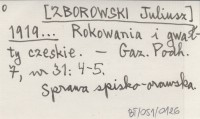 [ZBOROWSKI Juliusz]
1919... Rokowania i gwał-
ty czeskie. — Gaz. Podh.
7, nr 31: 4-5.
Sprawa spisko-orawska.
BJ/051/0126